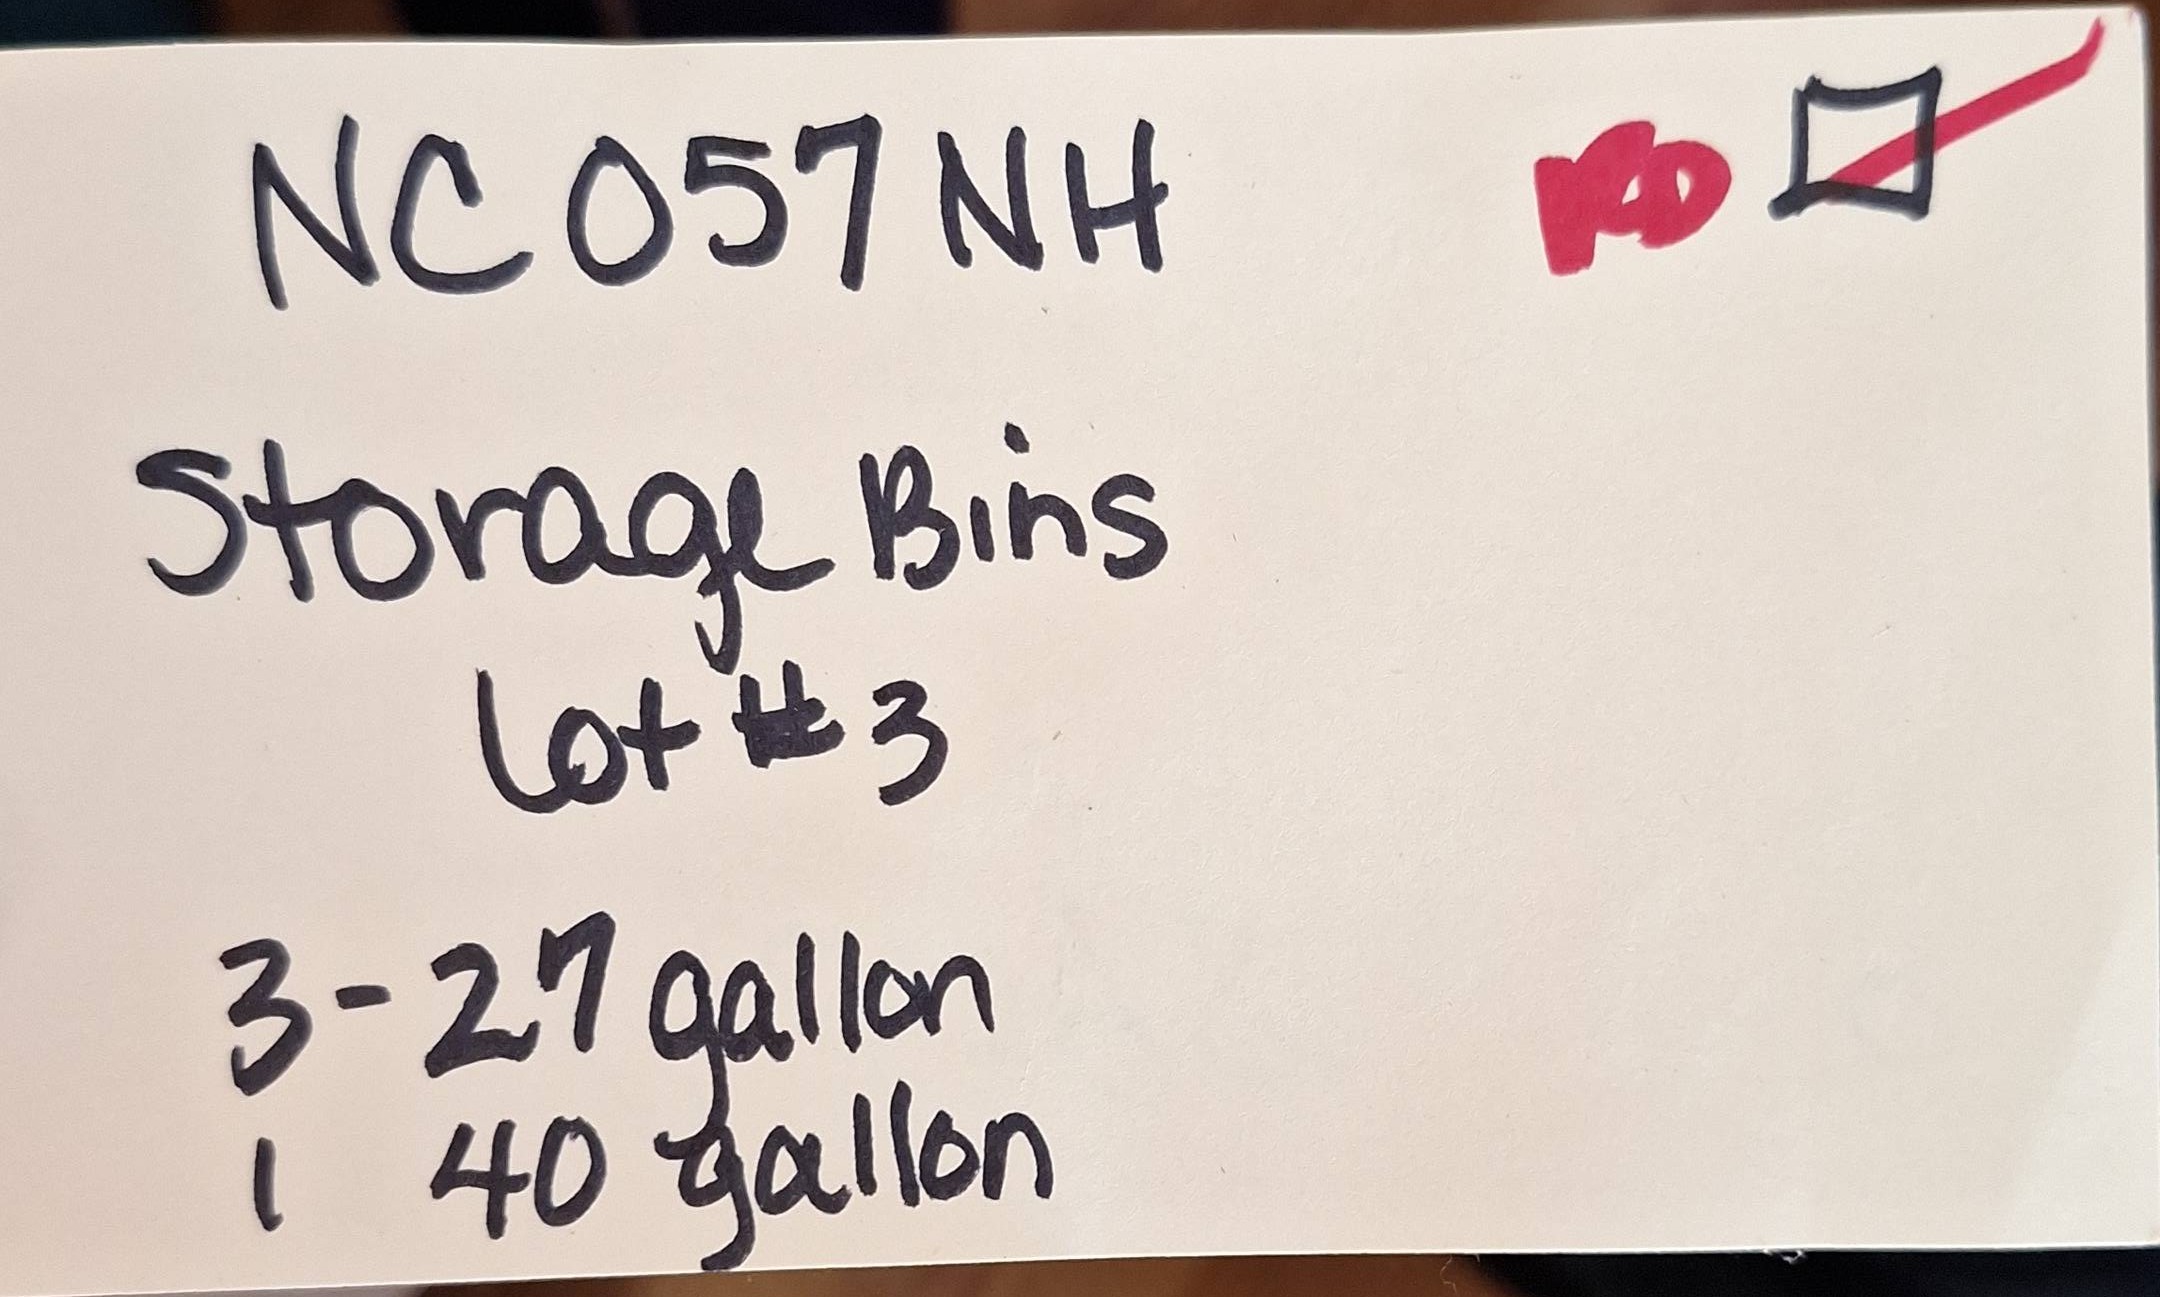 NC 057 NH
Storage Bins
Lot # 3
3 - 27 gallon
1 40 gallon